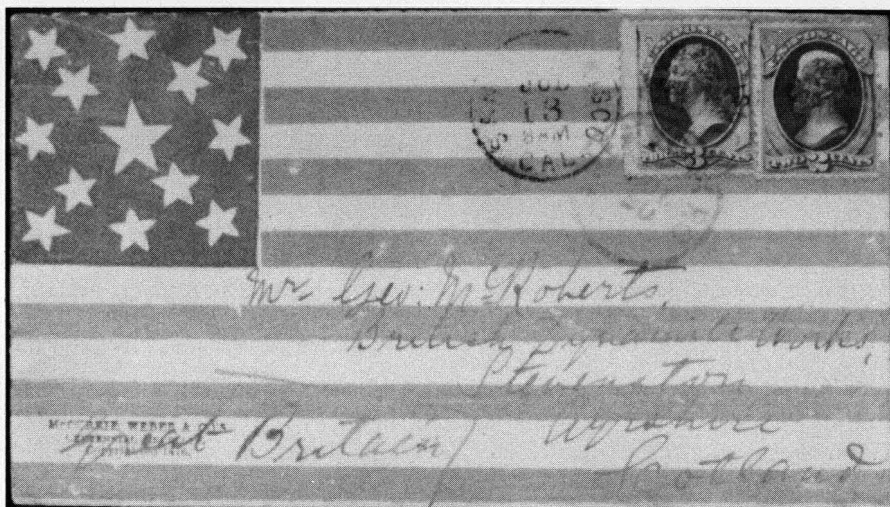 JUL
13
8 AM
CAL.
3
2
Mr Geo: McRoberts,
British Dynamite Works,
Stevenston
Ayrshire
Scotland
Great Britain
WEBER &